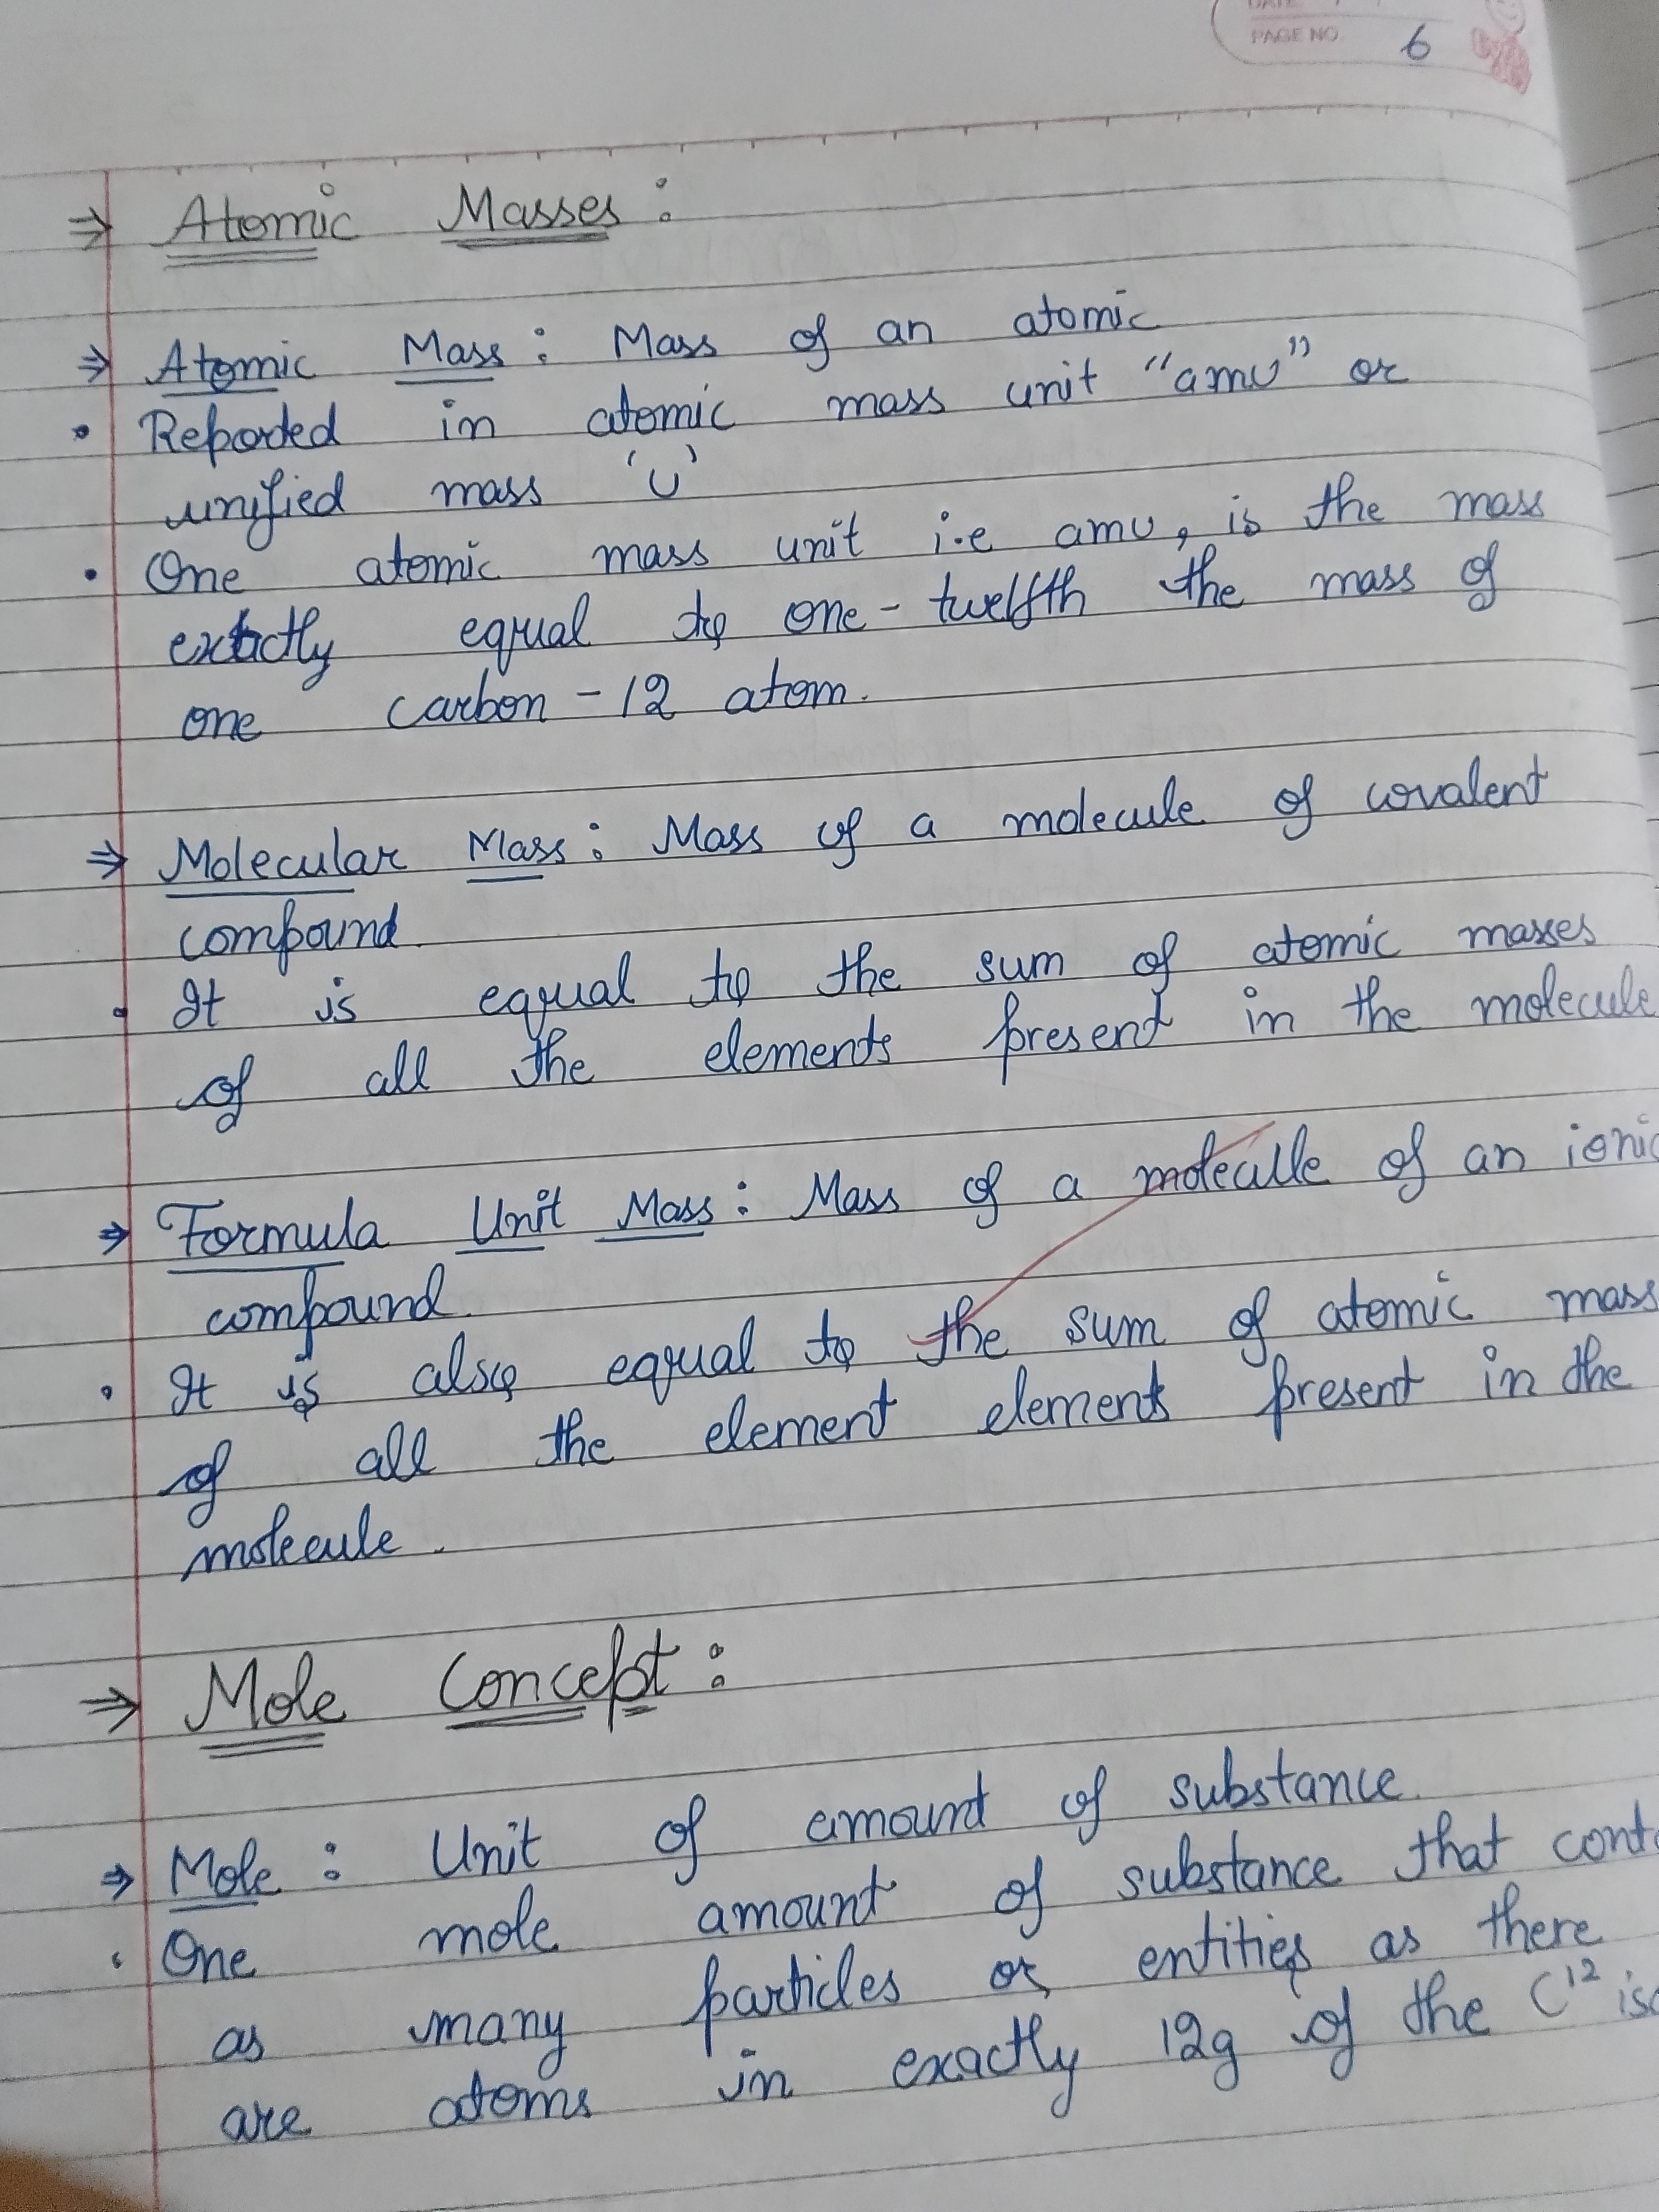 PAGE NO. 6
⇒ Atomic Masses :
⇒ Atomic Mass : Mass of an atomic
• Reported in atomic mass unit "amu" or
unified mass 'u'
• One atomic mass unit i.e amu, is the mass
exactly equal to one - twelfth the mass of
one carbon - 12 atom.
⇒ Molecular Mass : Mass of a molecule of covalent
compound.
• It is equal to the sum of atomic masses
of all the elements present in the molecule
⇒ Formula Unit Mass : Mass of a molecule of an ionic
compound.
• It is also equal to the sum of atomic mass
of all the element elements present in the
molecule.
⇒ Mole Concept :
⇒ Mole : Unit of amount of substance.
• One mole amount of substance that cont
as many particles or entities as there
are atoms in exactly 12g of the C¹² is